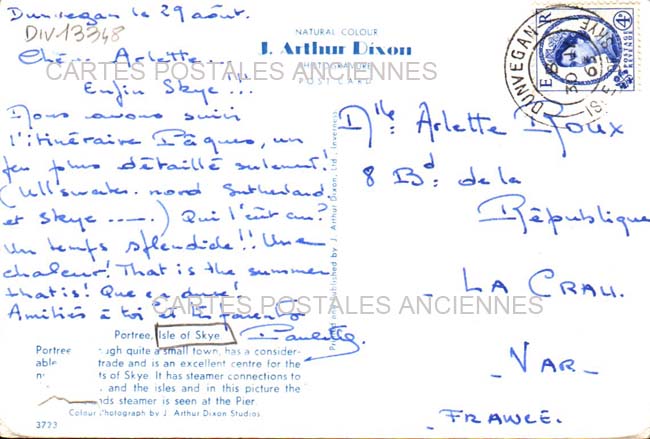 Dunvegan le 29 août.
DIV13348
Chère Arlette...
Enfin Skye...!!!
Nous avons suivi
l'itinéraire Pâques, un
peu plus détaillé sulement!
(Ullswater. nord Sutherland
et Skye .....) Qui l'eût cru?
Un temps splendide!! Une
chaleur! That is the summer
that is! Que ça dure!
Amitiés à toi et tes parents
Paulette
NATURAL COLOUR
J. Arthur Dixon
PHOTOGRAVURE
POSTCARD
CARTES POSTALES ANCIENNES
Printed and Published by J. Arthur Dixon, Ltd., (Inverness)
DUNVEGAN
ISLE OF SKYE
30
63
E R
4D
POSTAGE
REVENUE
Dlle: Arlette Roux
8 Bd: de la
République
_ LA CRAU.
_ VAR _
_ FRANCE.
CARTES POSTALES ANCIENNES
Portree, Isle of Skye
Portree ough quite a small town, has a consider-
able trade and is an excellent centre for the
ts of Skye. It has steamer connections to
and the isles and in this picture the
nds steamer is seen at the Pier.
Colour Photograph by J. Arthur Dixon Studios.
3773